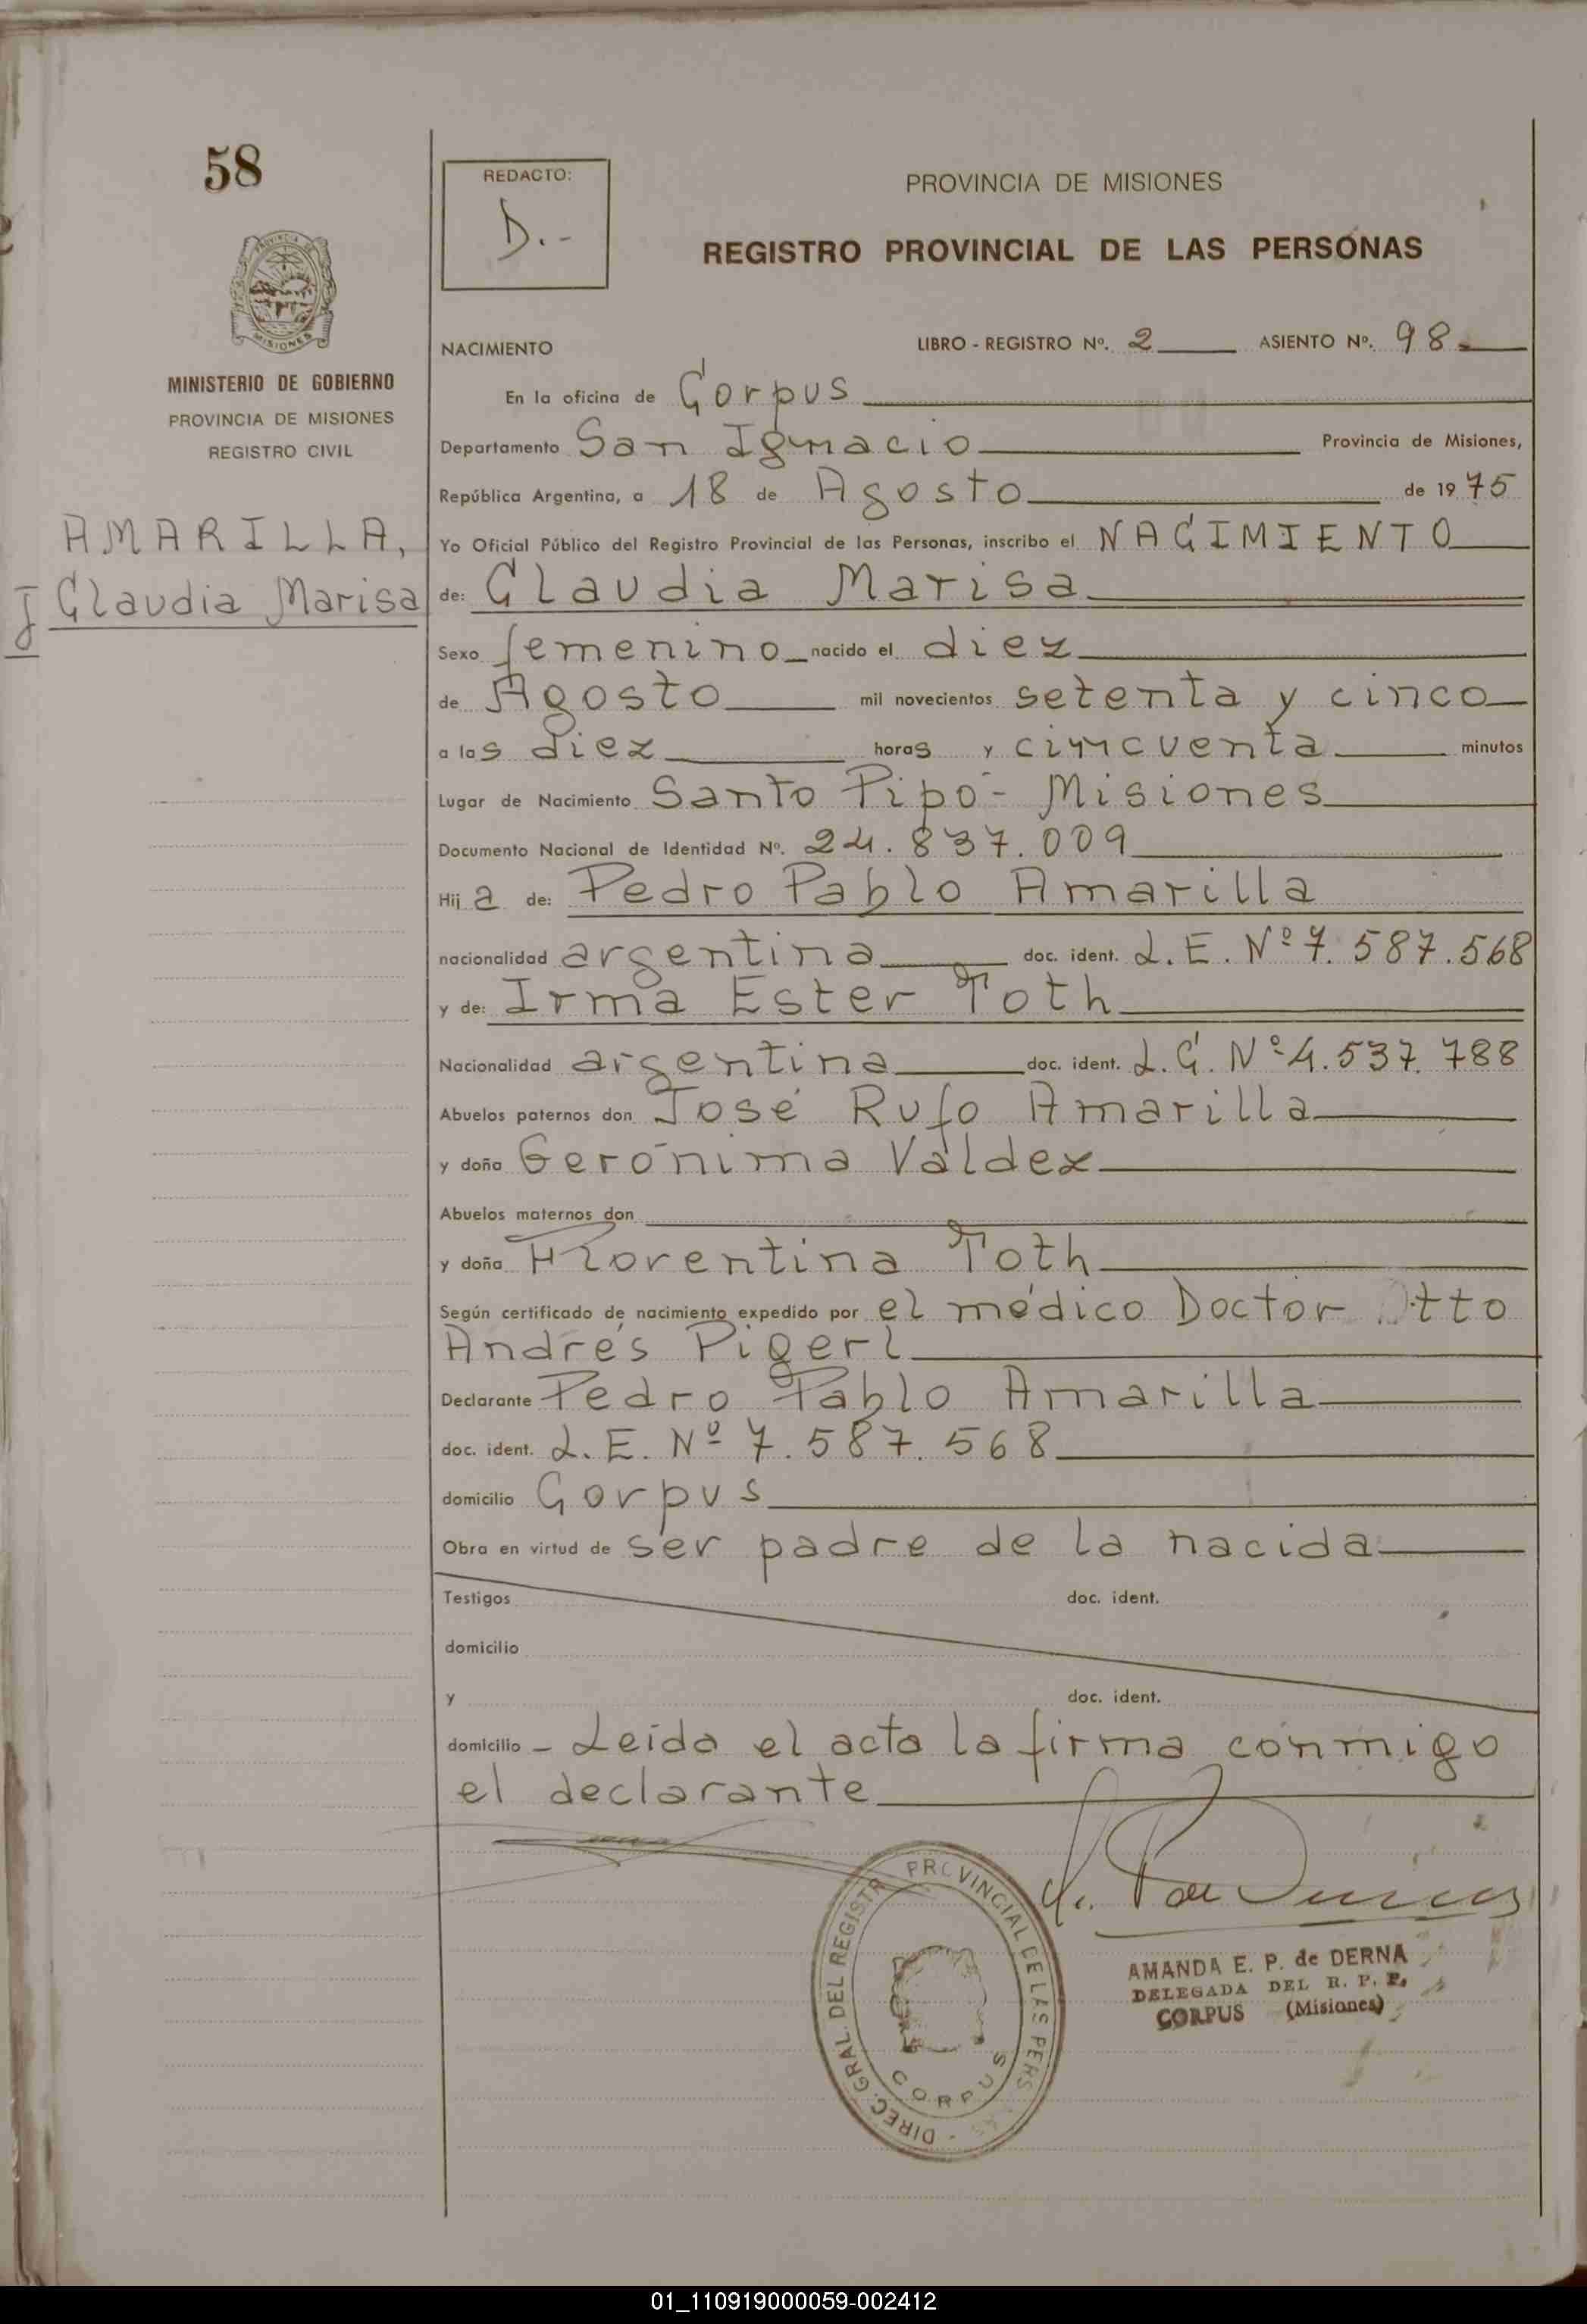 58
REDACTO:
D.-
PROVINCIA DE MISIONES
REGISTRO PROVINCIAL DE LAS PERSONAS
MISIONES
MINISTERIO DE GOBIERNO
PROVINCIA DE MISIONES
REGISTRO CIVIL
AMARILLA,
Claudia Marisa
NACIMIENTO LIBRO - REGISTRO Nº. 2 ASIENTO Nº. 98
En la oficina de Corpus
Departamento San Ignacio Provincia de Misiones,
República Argentina, a 18 de Agosto de 1975
Yo Oficial Público del Registro Provincial de las Personas, inscribo el NACIMIENTO
de: Claudia Marisa
Sexo femenino nacido el diez
de Agosto mil novecientos setenta y cinco
a las diez horas y cincuenta minutos
Lugar de Nacimiento Santo Pipó - Misiones
Documento Nacional de Identidad Nº. 24.837.009
Hija de: Pedro Pablo Amarilla
nacionalidad argentina doc. ident. L.E. Nº 7.587.568
y de: Irma Ester Toth
Nacionalidad argentina doc. ident. L.C. Nº 4.537.788
Abuelos paternos don José Rufo Amarilla
y doña Gerónima Valdez
Abuelos maternos don
y doña Florentina Toth
Según certificado de nacimiento expedido por el médico Doctor Otto
Andrés Pigerl
Declarante Pedro Pablo Amarilla
doc. ident. L.E. Nº 7.587.568
domicilio Corpus
Obra en virtud de ser padre de la nacida
Testigos doc. ident.
domicilio
y doc. ident.
domicilio - Leída el acta la firma conmigo
el declarante
DIREC. GRAL. DEL REGISTR PROVINCIAL DE LAS PERS
CORPUS
AMANDA E. P. de DERNA
DELEGADA DEL R. P. P.
CORPUS (Misiones)
01_110919000059-002412